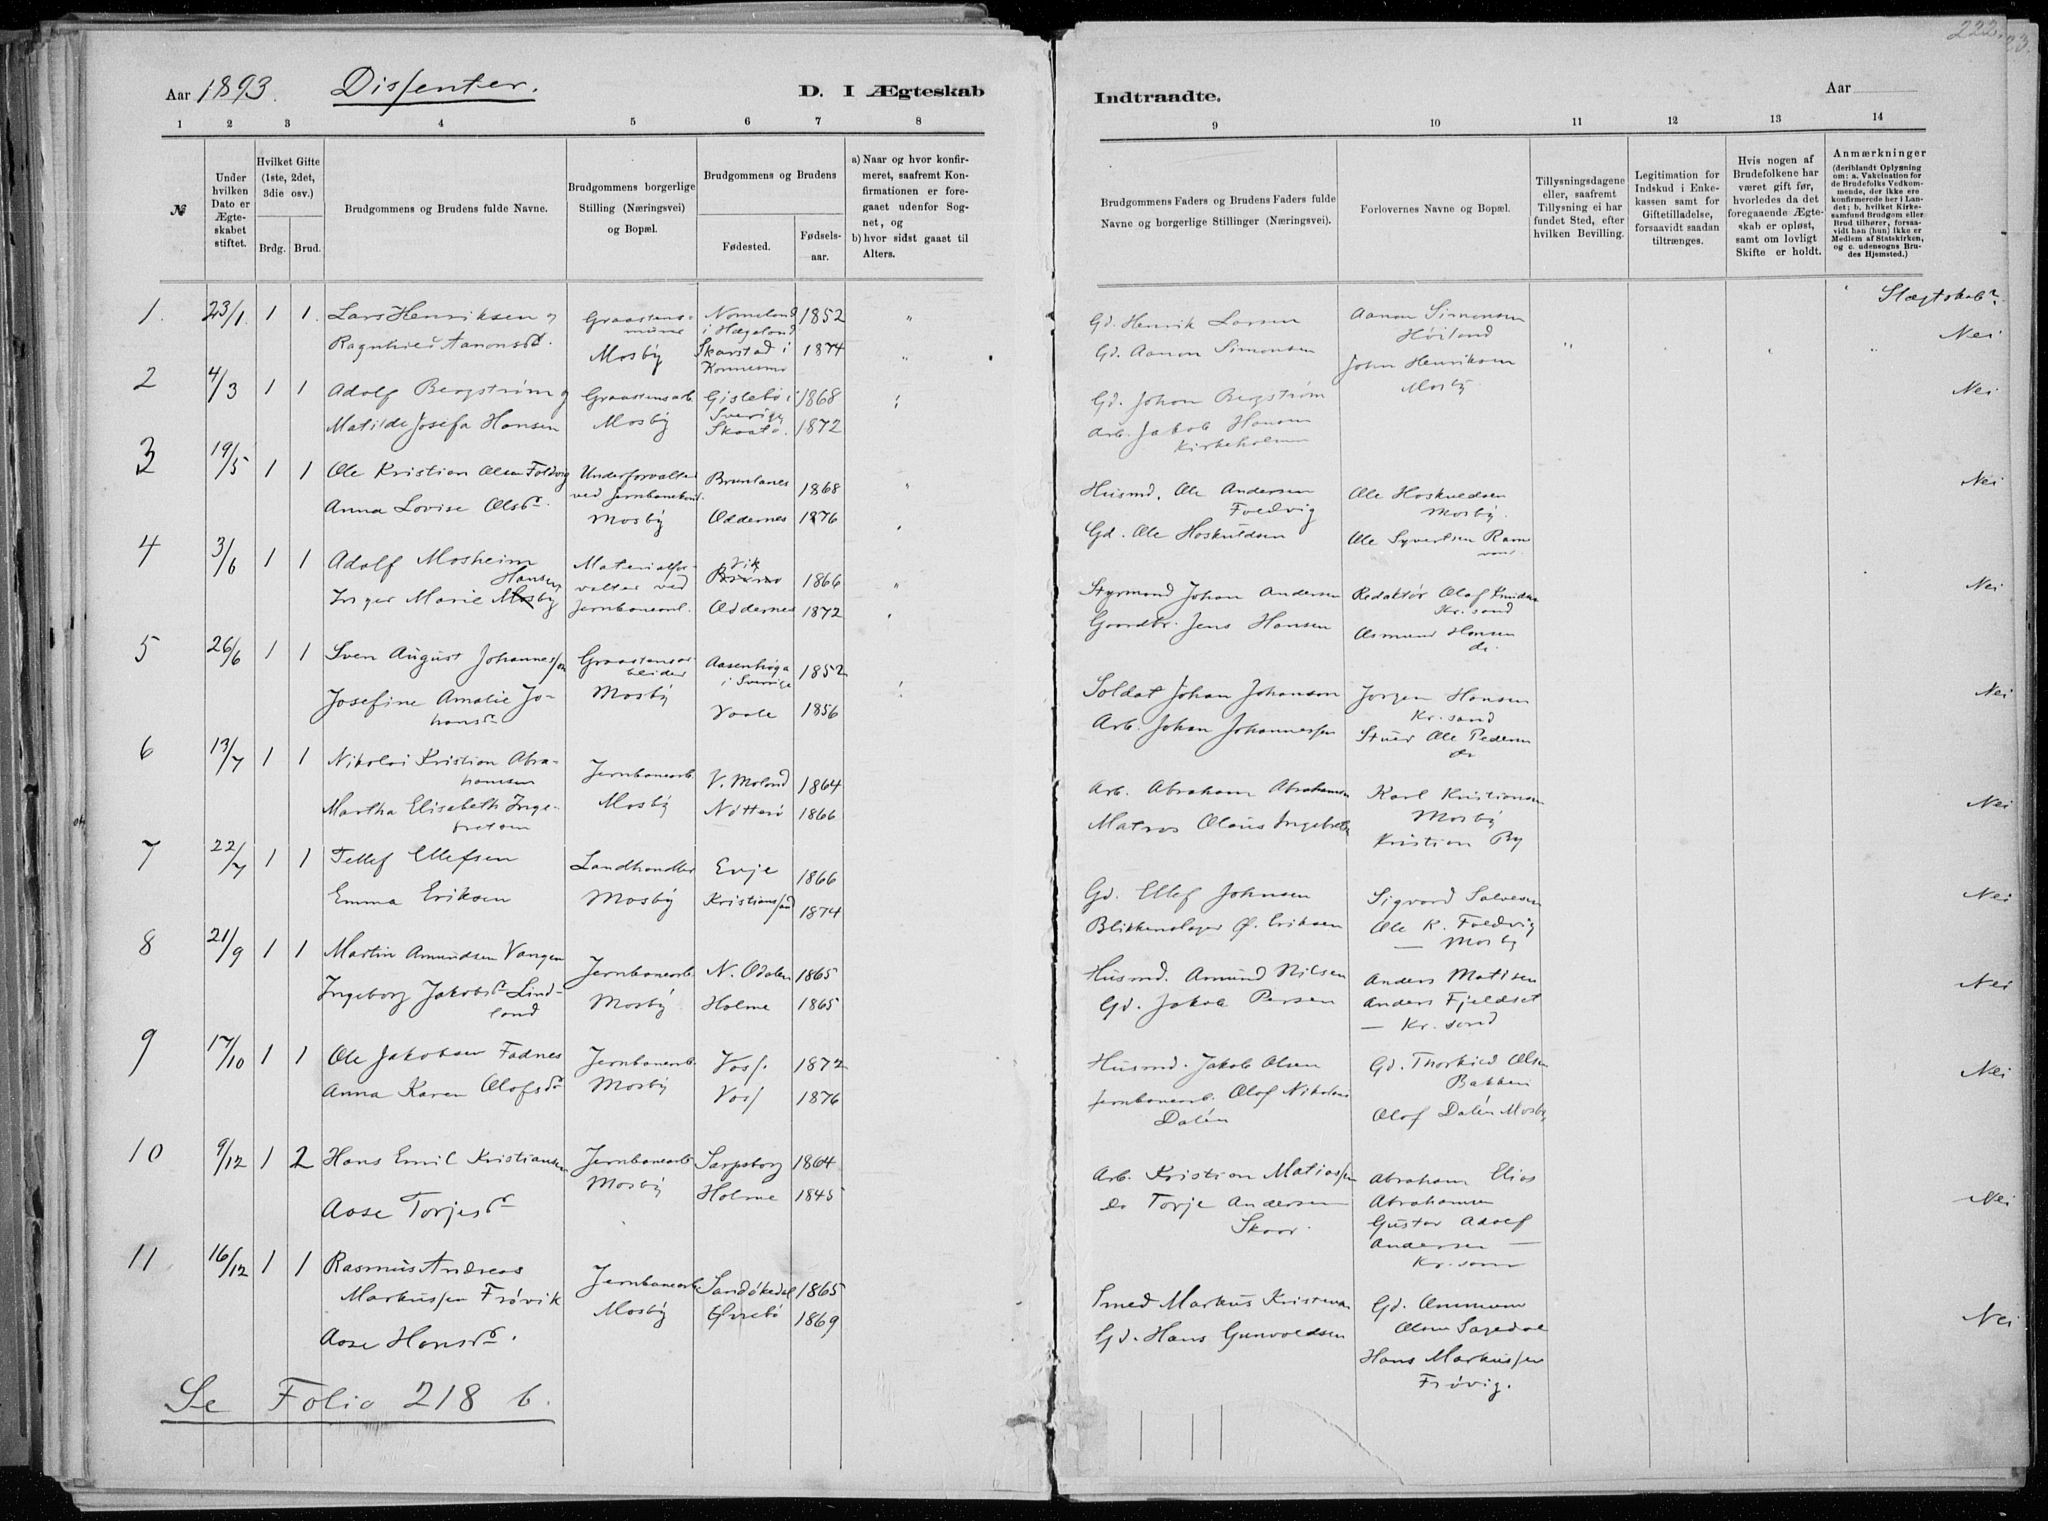 222.
23.
Aar 1893. Dissenter. D. I Ægteskab
Indtraadte. Aar
1 2 3 4 5 6 7 8
9 10 11 12 13 14
№
Under hvilken Dato er Ægteskabet stiftet.
Hvilket Gifte (1ste, 2det, 3die osv.)
Brdg. Brud.
Brudgommens og Brudens fulde Navne.
Brudgommens borgerlige Stilling (Næringsvei) og Bopæl.
Brudgommens og Brudens
Fødested.
Fødselsaar.
a) Naar og hvor konfirmeret, saafremt Konfirmationen er foregaaet udenfor Sognet, og
b) hvor sidst gaaet til Alters.
Brudgommens Faders og Brudens Faders fulde Navne og borgerlige Stillinger (Næringsvei).
Forlovernes Navne og Bopæl.
Tillysningsdagene eller, saafremt Tillysning ei har fundet Sted, efter hvilken Bevilling.
Legitimation for Indskud i Enkekassen samt for Giftetilladelse, forsaavidt saadan tiltrænges.
Hvis nogen af Brudefolkene har været gift før, hvorledes da det foregaaende Ægteskab er opløst, samt om lovligt Skifte er holdt.
Anmærkninger (deriblandt Oplysning om: a. Vakcination for de Brudefolks Vedkommende, der ikke ere konfirmerede her i Landet; b. hvilket Kirkesamfund Brudgom eller Brud tilhører, forsaavidt han (hun) ikke er Medlem af Statskirken, og c. udensogns Brudes Hjemsted.)
Slægtskab?
1. 23/1 1 1. Lars Henriksen og Graastens- Nomeland 1852 "
i Hægeland
Ragnhild Aanonsd. Mosby Skarstad i 1874 "
Konnesmo
Gd. Henrik Larsen Aanon Simonsen
Høiland
Gd. Aanon Simonsen John Henriksen
Mosby
Nei
2 4/3 1 1 Adolf Bergstrøm og Graastensarb. Gislebø i 1868
Sverige
Matilde Josefa Hansen Mosby Skaatø. 1872
Gd. Johan Bergstrøm
Arb. Jakob Hansen
Kirkeholmen
Nei
3 19/5 1 1 Ole Kristian Olsen Foldvig Underforvalter Brunlanes 1868 "
ved Jernbanebond.
Anna Lovise Olsd. Mosby Oddernes 1876
Husmd. Ole Andersen Ole Hoskuldsen
Foldvig Mosby.
Gd. Ole Hoskuldsen Ole Syvertsen
Nei
4 3/6 1 1 Adolf Mosheim Materialfor- Vik 1866 "
Hansen valter ved
Inger Marie Mosby Jernbaneanl. Oddernes 1872
Styrmand Johan Andersen Redaktør Olaf Knudsen
Kr.sand
Gaardbr. Jens Hansen Asmund Hansen
do.
Nei
5 26/6 1 1 Sven August Johannessen Graastensar- Aasenhøga 1852
beider i Sverige
Josefine Amalie Jo- Mosby Vaale 1856
hansd.
Soldat Johan Johanson Jørgen Hansen
Kr.sand
Arb. Johan Johannessen Stuer Ole Pedersen
do
Nei
6 13/7 1 1 Nikolai Kristian Abra- Jernbanearb. V. Moland 1864
hamsen
Martha Elisabeth Inge- Mosby Nøtterø 1866
bretsen
Arb. Abraham Abrahamsen Karl Kristiansen
Mosby
Matros Olaus Ingebretsen Kristian By
Nei
7 22/7 1 1 Tellef Ellefsen Landhandler Evje 1866
Emma Eriksen Mosby Kristianssand 1874
Gd. Ellef Johnsen Sigvard Salvesen
Blikkenslager Ø. Eriksen Ole K. Foldvig
— Mosby
Nei
8 21/9 1 1 Martin Amundsen Vangen Jernbanearb. N. Odalen 1865
Ingeborg Jakobsd. Lind- Mosby Holme 1865
land
Husmd. Amund Nilsen Anders Matisen
Gd. Jakob Persen Anders Fjeldset
— Kr.sand
Nei
9 17/10 1 1 Ole Jakobsen Fadnes Jernbanearb. Voss. 1872
Anna Karen Olofsd. Mosby Voss 1876
Husmd. Jakob Olsen Gd. Thorkild Olsen
Bakken
Jernbanearb. Olof Nikolai
Dalén Olof Dalén Mosby
Nei
10 9/12 1 2 Hans Emil Kristiansen Jernbanearb. Sarpsborg 1864
Mosby Holme 1845
Aase Torjesd.
Arb. Kristian Matiassen Abraham Elias
do Torje Andersen Abrahamsen
Skaar. Gustav Adolf
Andersen —
Kr.sand
Nei
11 16/12 1 1 Rasmus Andreas Jernbanearb. Sandøkedal 1865
Markussen Frøvik Mosby Øvrebø 1869
Aase Hansd.
Smed Markus Kristensen Gd. Ommund
Olsen Sagedal
Gd. Hans Gunvoldsen Hans Markussen
Frøvig.
Nei
Se Folio 218 b.